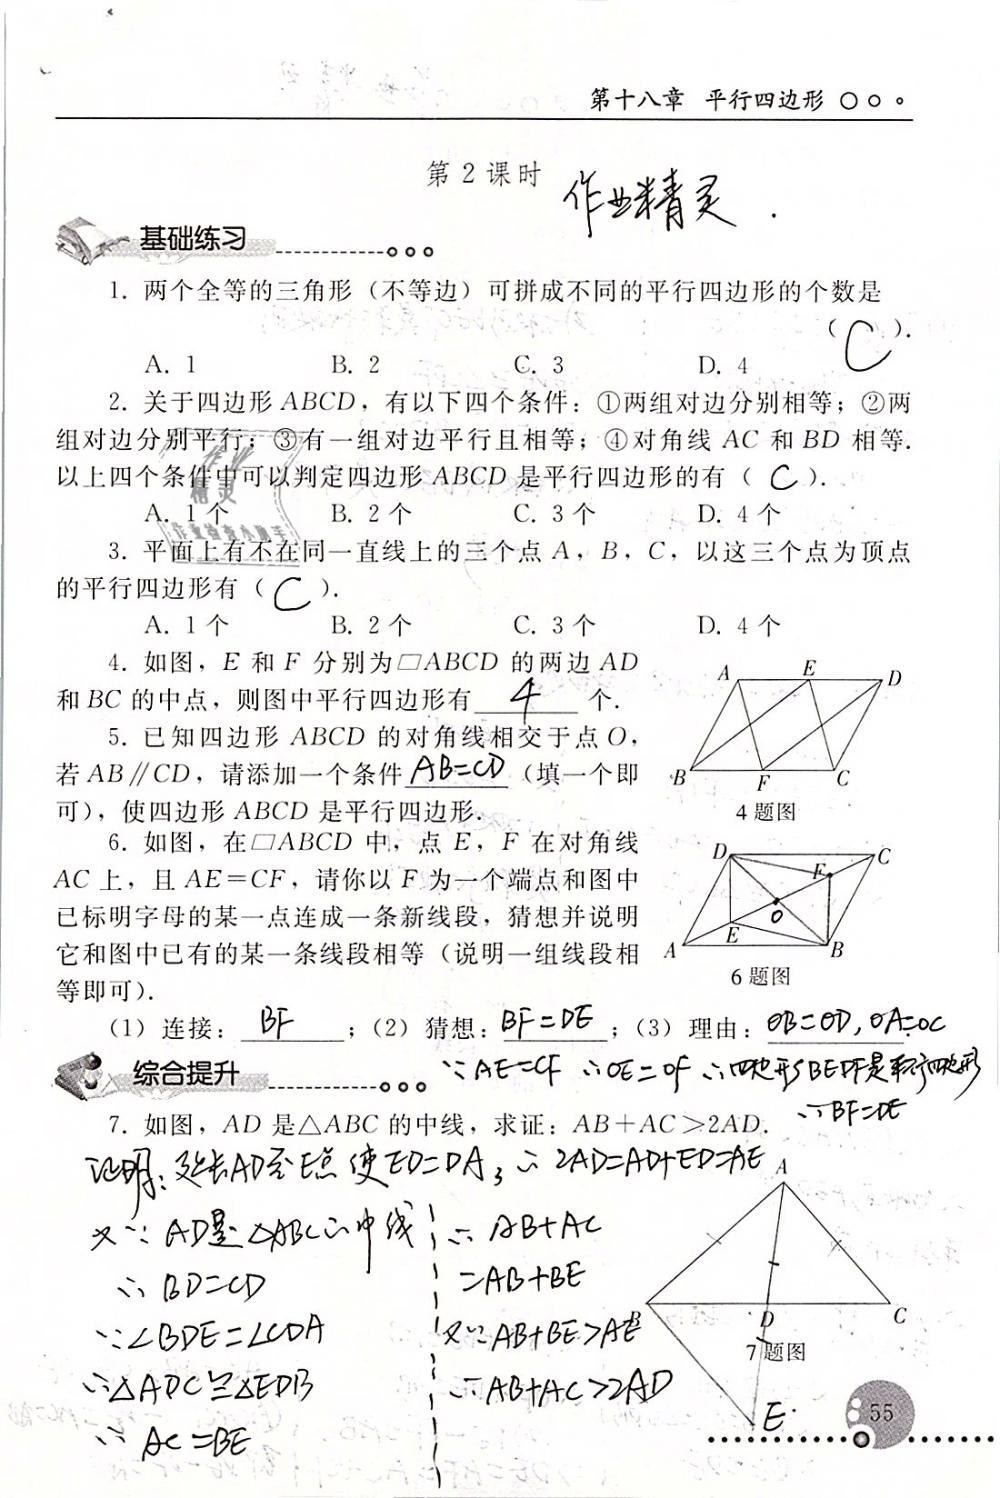 第十八章 平行四边形
第 2 课时
作业精灵
基础练习
1. 两个全等的三角形（不等边）可拼成不同的平行四边形的个数是
（ C ）.
A. 1 B. 2 C. 3 D. 4
2. 关于四边形 ABCD，有以下四个条件：①两组对边分别相等；②两
组对边分别平行；③有一组对边平行且相等；④对角线 AC 和 BD 相等.
以上四个条件中可以判定四边形 ABCD 是平行四边形的有（ C ）.
A. 1 个 B. 2 个 C. 3 个 D. 4 个
3. 平面上有不在同一直线上的三个点 A，B，C，以这三个点为顶点
的平行四边形有（ C ）.
A. 1 个 B. 2 个 C. 3 个 D. 4 个
4. 如图，E 和 F 分别为▱ABCD 的两边 AD
和 BC 的中点，则图中平行四边形有 4 个.
5. 已知四边形 ABCD 的对角线相交于点 O，
若 AB∥CD，请添加一个条件 AB=CD （填一个即
可），使四边形 ABCD 是平行四边形.
A E D
B F C
4 题图
6. 如图，在▱ABCD 中，点 E，F 在对角线
AC 上，且 AE=CF，请你以 F 为一个端点和图中
已标明字母的某一点连成一条新线段，猜想并说明
它和图中已有的某一条线段相等（说明一组线段相
等即可）.
D C
F
O
E
A B
6 题图
（1）连接： BF ；（2）猜想： BF=DE ；（3）理由： OB=OD, OA=OC
∵AE=CF ∴OE=OF ∴四边形BEDF是平行四边形
∴BF=DE
综合提升
7. 如图，AD 是△ABC 的中线，求证：AB+AC>2AD.
证明：延长AD至E点 使ED=DA, ∴2AD=AD+ED=AE
又∵AD是△ABC的中线
∴BD=CD
∵∠BDE=∠CDA
∴△ADC≌△EDB
∴AC=BE
∴AB+AC
=AB+BE
又∵AB+BE>AE
∴AB+AC>2AD
A
B D C
7 题图
E
55
作业
精灵
作业检查小助手